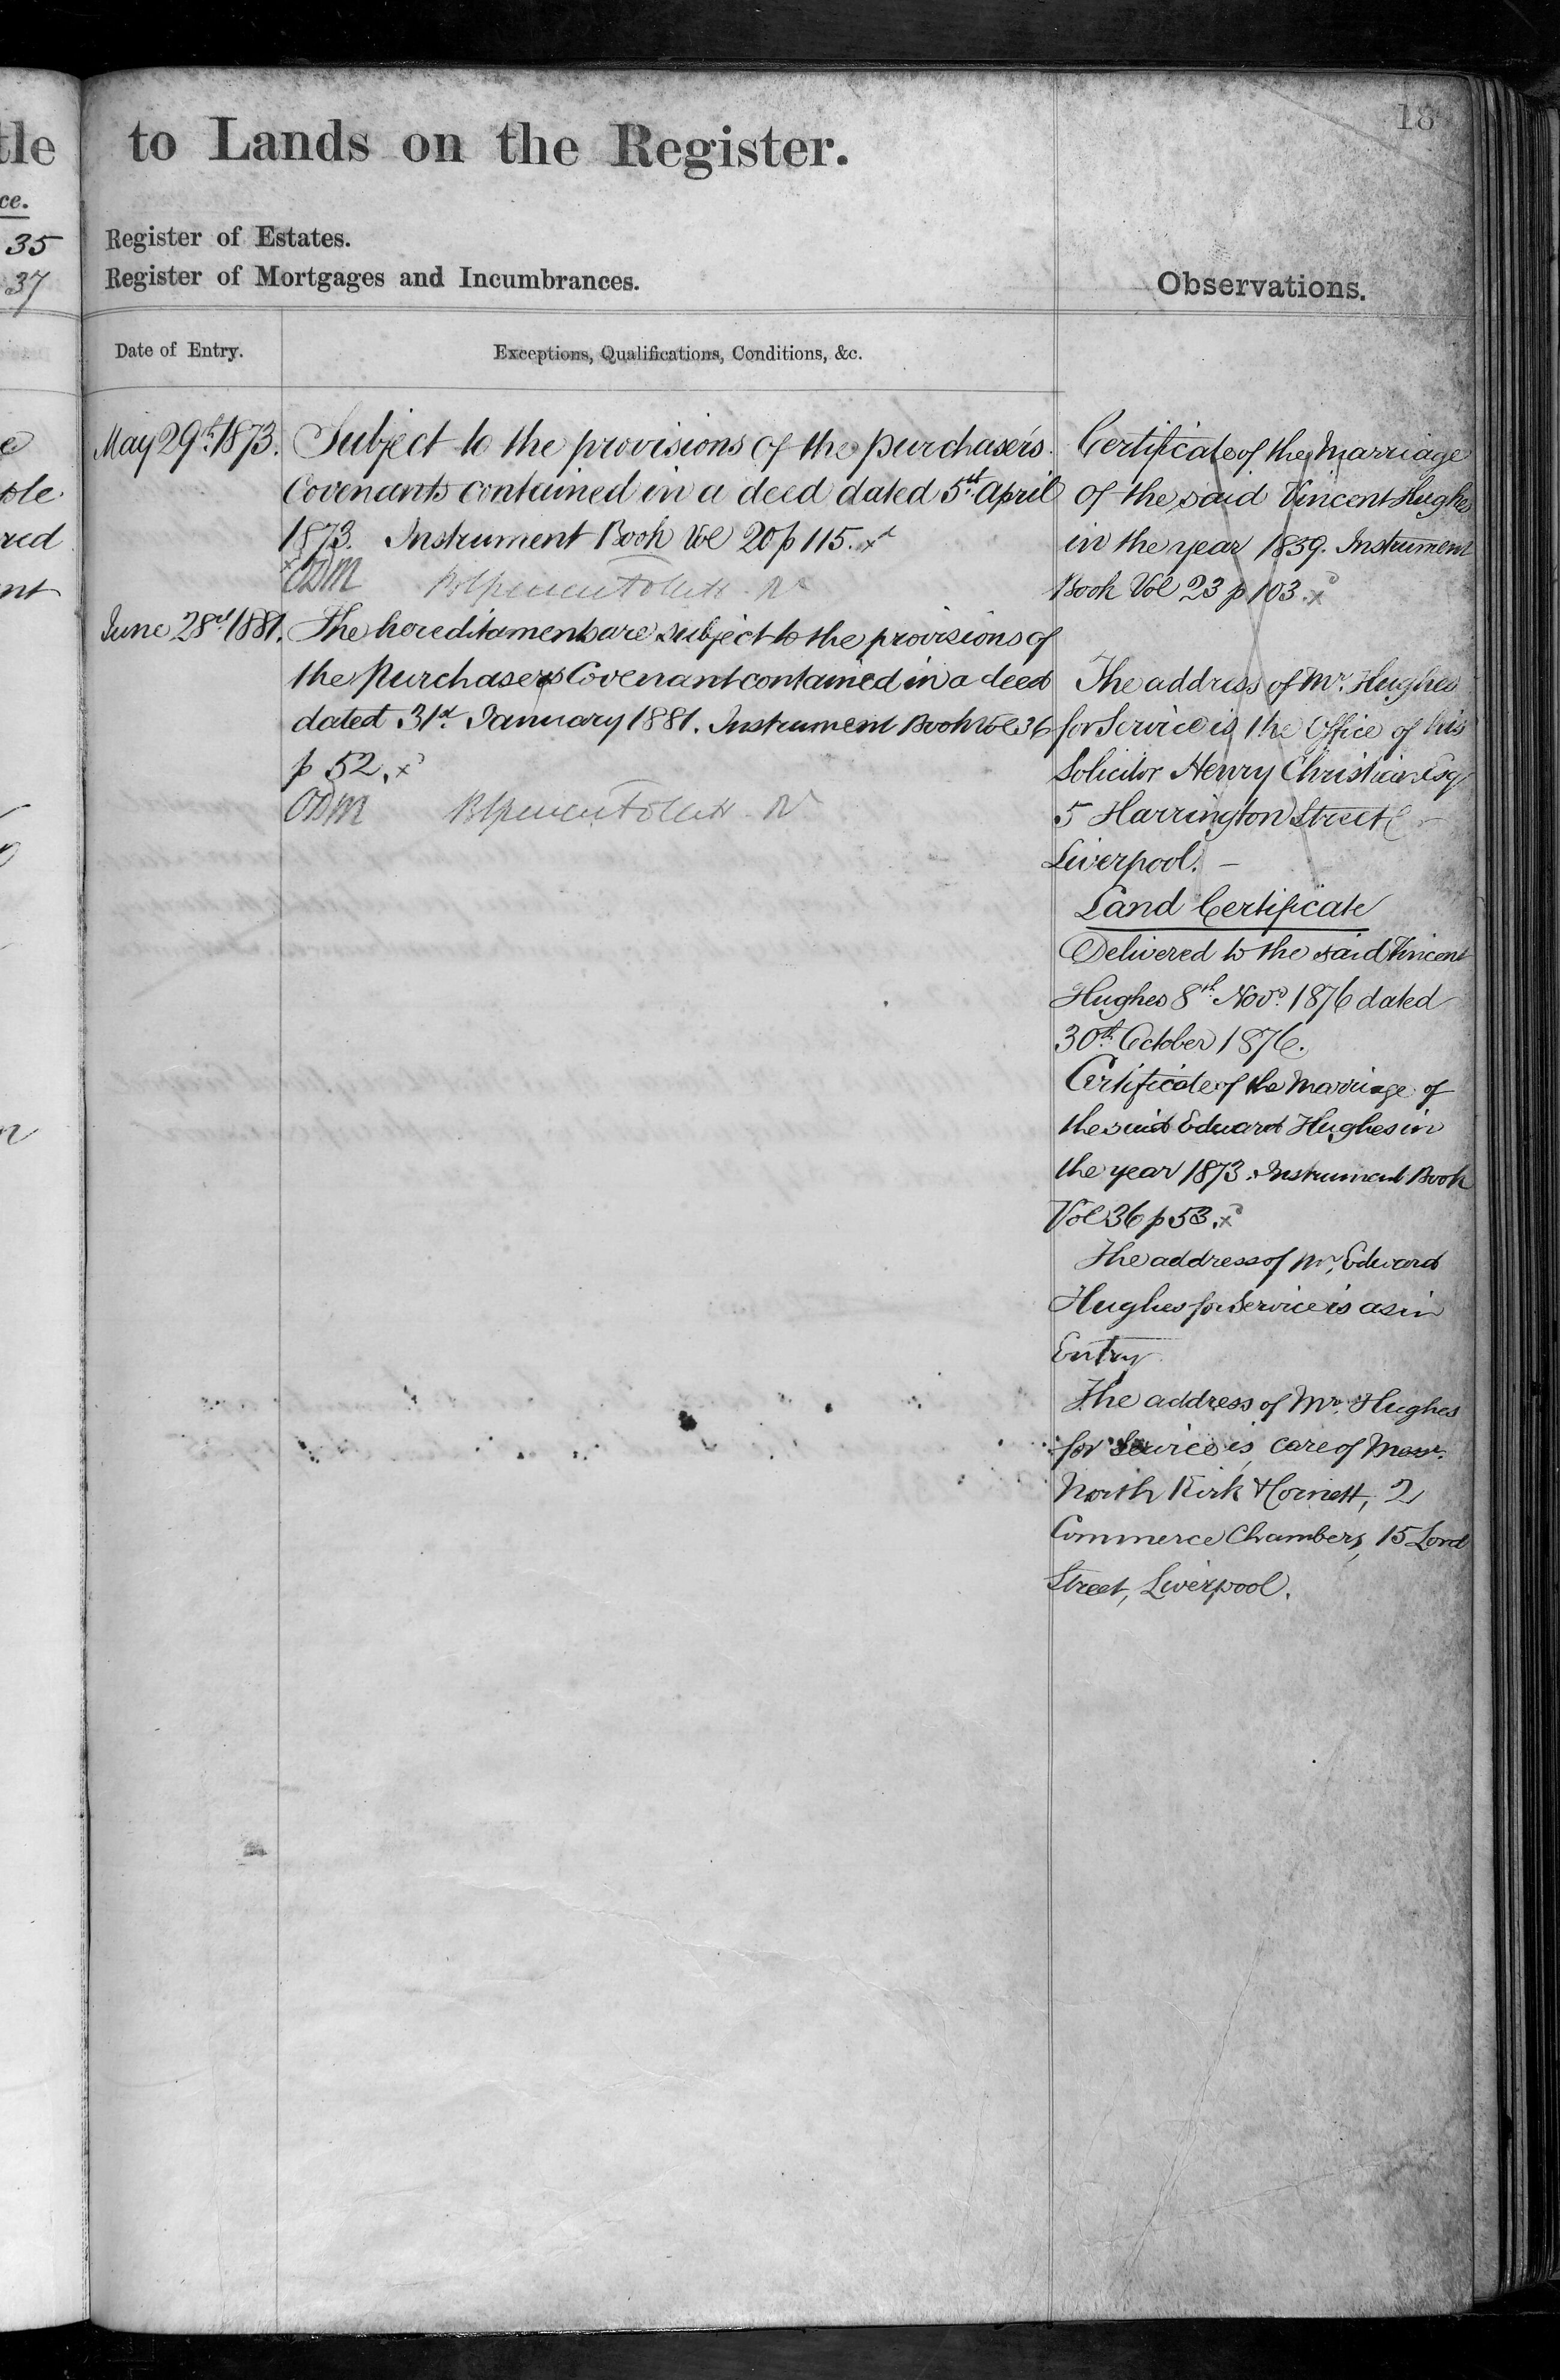 tle
ce.
35
37
e
ole
red
nt
to Lands on the Register.
18
Register of Estates.
Register of Mortgages and Incumbrances.
Observations.
Date of Entry.
Exceptions, Qualifications, Conditions, &c.
May 29th 1873.
Subject to the provisions of the purchaser's
Covenants contained in a deed dated 5th April
1873. Instrument Book Vol 20 p 115. x
ODM
June 28th 1881.
The hereditaments are subject to the provisions of
the purchasers Covenant contained in a deed
dated 31st January 1881. Instrument Book Vol 36
p 52. x
ODM
Certificate of the Marriage
of the said Vincent Hughes
in the year 1859. Instrument
Book Vol 23 p 103. x
The address of Mr. Hughes
for Service is the Office of his
Solicitor Henry Christian Esq
5 Harrington Street
Liverpool. —
Land Certificate
Delivered to the said Vincent
Hughes 8th Novr. 1876 dated
30th October 1876.
Certificate of the Marriage of
the said Edward Hughes in
the year 1873. Instrument Book
Vol 36 p 53. x
The address of Mr. Edward
Hughes for Service is as in
Entry
The address of Mr. Hughes
for Service is, care of Messrs.
North Kirk & Cornett, 2
Commerce Chambers, 15 Lord
Street, Liverpool.